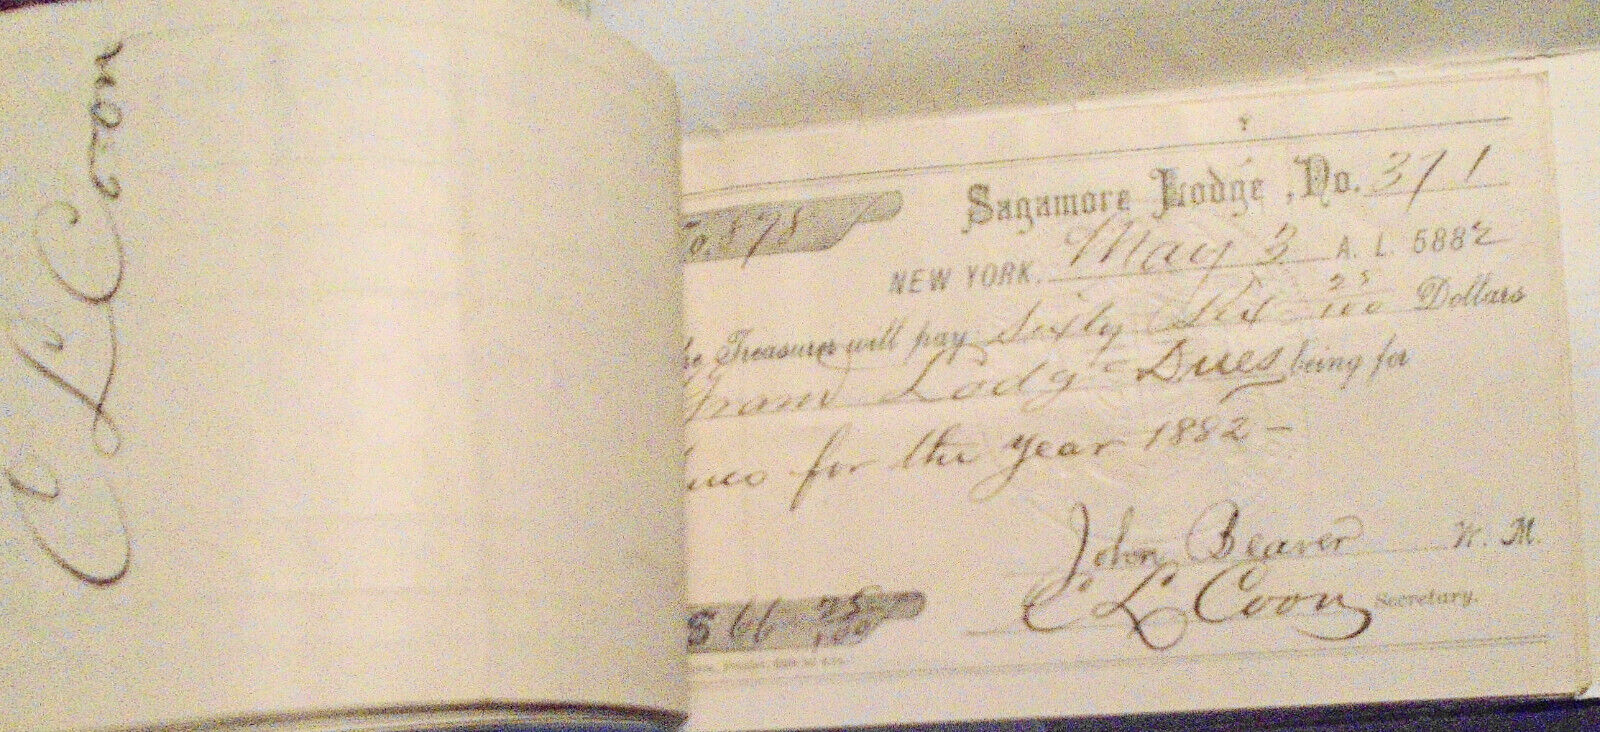 C L Coon
Sagamore Lodge, No. 371
No. 878
NEW YORK, May 3 A. L. 5882
The Treasurer will pay Sixty Six 25/100 Dollars
Grand Lodge Dues being for
dues for the year 1882 -
John Beaver W. M.
C L Coon Secretary.
$ 66 25/100